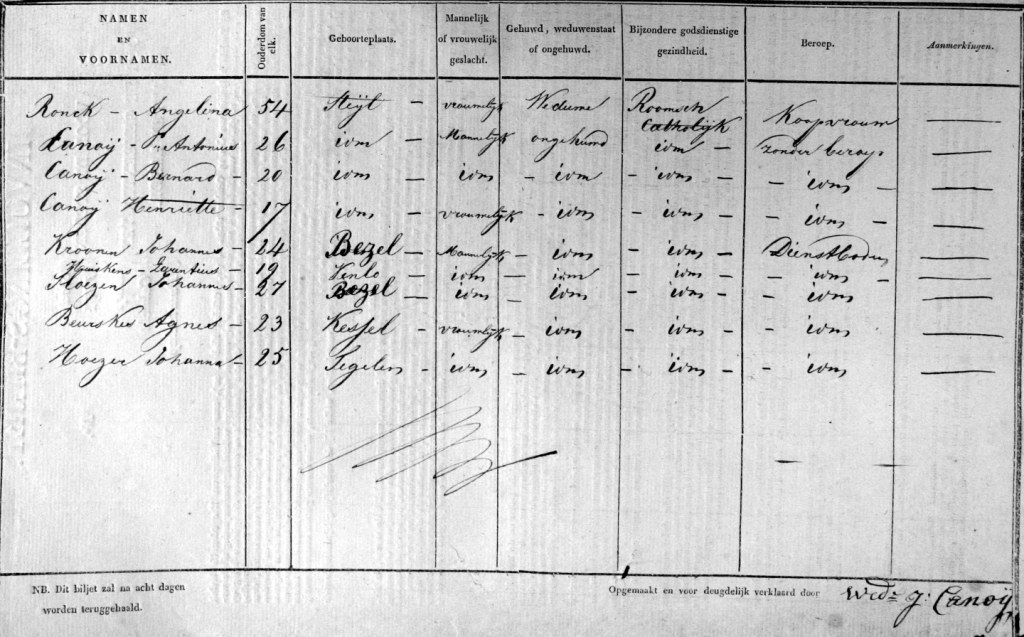 NAMEN EN VOORNAMEN. Ouderdom van elk. Geboorteplaats. Mannelijk of vrouwelijk geslacht. Gehuwd, weduwenstaat of ongehuwd. Bijzondere godsdienstige gezindheid. Beroep. Aanmerkingen.
Ronck - Angelina 54 Steyl - vrouwelijk Weduwe Roomsch Catholijk Koopvrouw —
Canoÿ - Antonius 26 idm - Mannelijk ongehuwd idm - zonder beroep —
Canoÿ - Bernard - 20 idm - idm - idm - idm - - idm - —
Canoÿ Henriette - 17 idm - vrouwelijk - idm - idm - - idm —
Kroonen Johannes - 24 Bezel - Mannelijk - idm - idm - Dienstboden —
Huiskens - - 19 Venlo - idm - idm - idm - - idm —
Johannes - 27 Bezel - idm - idm - idm - - idm —
Beurskes Agnes - 23 Kessel - vrouwelijk - idm - idm - - idm —
Hoezer Johanna - 25 Tegelen - idm - idm - idm - - idm —
NB. Dit biljet zal na acht dagen
worden teruggehaald.
Opgemaakt en voor deugdelijk verklaard door Wed: J: Canoÿ